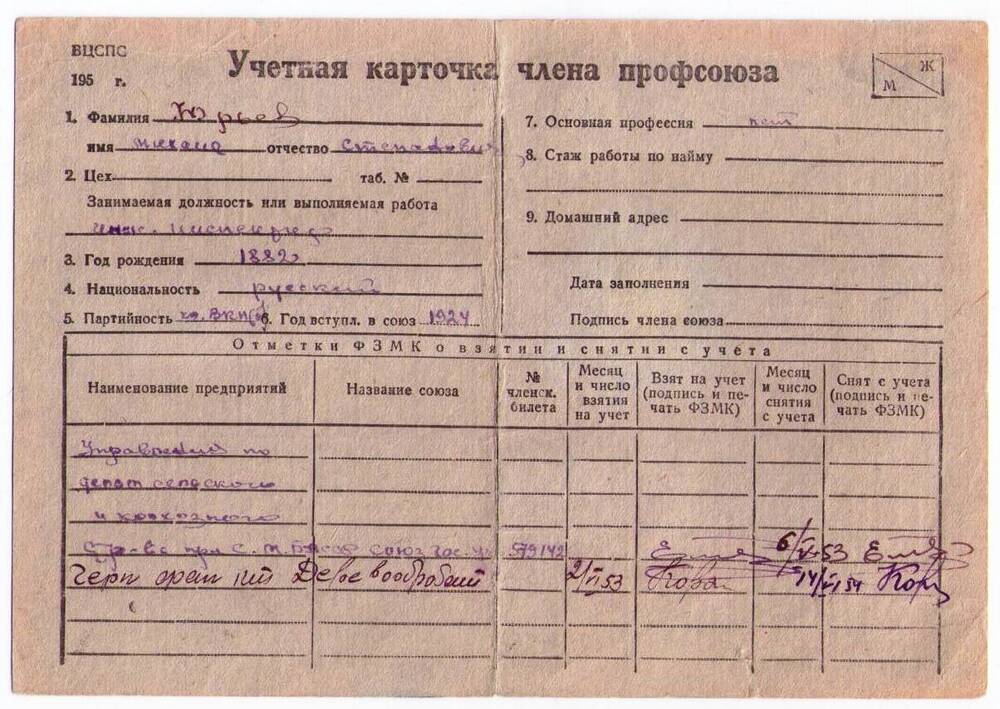 ВЦСПС
195 г.
Учетная карточка члена профсоюза
М Ж
1. Фамилия Юрьев
имя Михаил отчество Степанович
2. Цех таб. №
Занимаемая должность или выполняемая работа
инж. инспектор
3. Год рождения 1882
4. Национальность русский
5. Партийность ВКП(б) 6. Год вступл. в союз 1924
7. Основная профессия
8. Стаж работы по найму
9. Домашний адрес
Дата заполнения
Подпись члена союза
Отметки ФЗМК о взятии и снятии с учета
Наименование предприятий
Название союза
№ членск. билета
Месяц и число взятия на учет
Взят на учет (подпись и печать ФЗМК)
Месяц и число снятия с учета
Снят с учета (подпись и печать ФЗМК)
Управлений по
делам сельского
и колхозного
стр-ва при С. М. союз гос. 579142 6/VI-53
Деревообробний 2/VI 53 14/VI 54